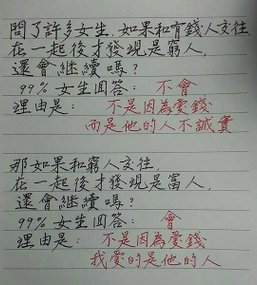 問了許多女生,如果和有錢人交往
在一起後才發現是窮人,
還會繼續嗎?
99% 女生回答: 不會
理由是: 不是因為愛錢
而是他的人不誠實
那如果和窮人交往,
在一起後才發現是富人,
還會繼續嗎?
99% 女生回答: 會
理由是: 不是因為愛錢
我愛的是他的人